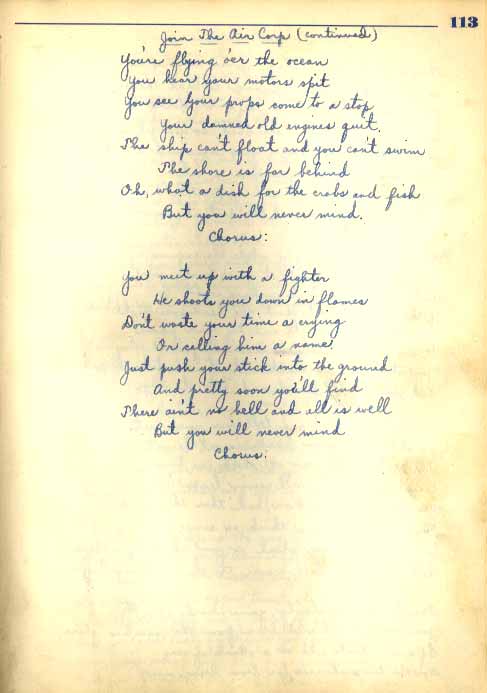 113
Join The Air Corp (continued)
You're flying o'er the ocean
You hear your motors spit
You see your props come to a stop
Your damned old engines quit.
The ship can't float and you can't swim
The shore is far behind
Oh, what a dish for the crabs and fish
But you will never mind.
Chorus:
You meet up with a fighter
He shoots you down in flames
Don't waste your time a crying
Or calling him a name.
Just push your stick into the ground
And pretty soon you'll find
There ain't no hell and all is well
But you will never mind
Chorus.